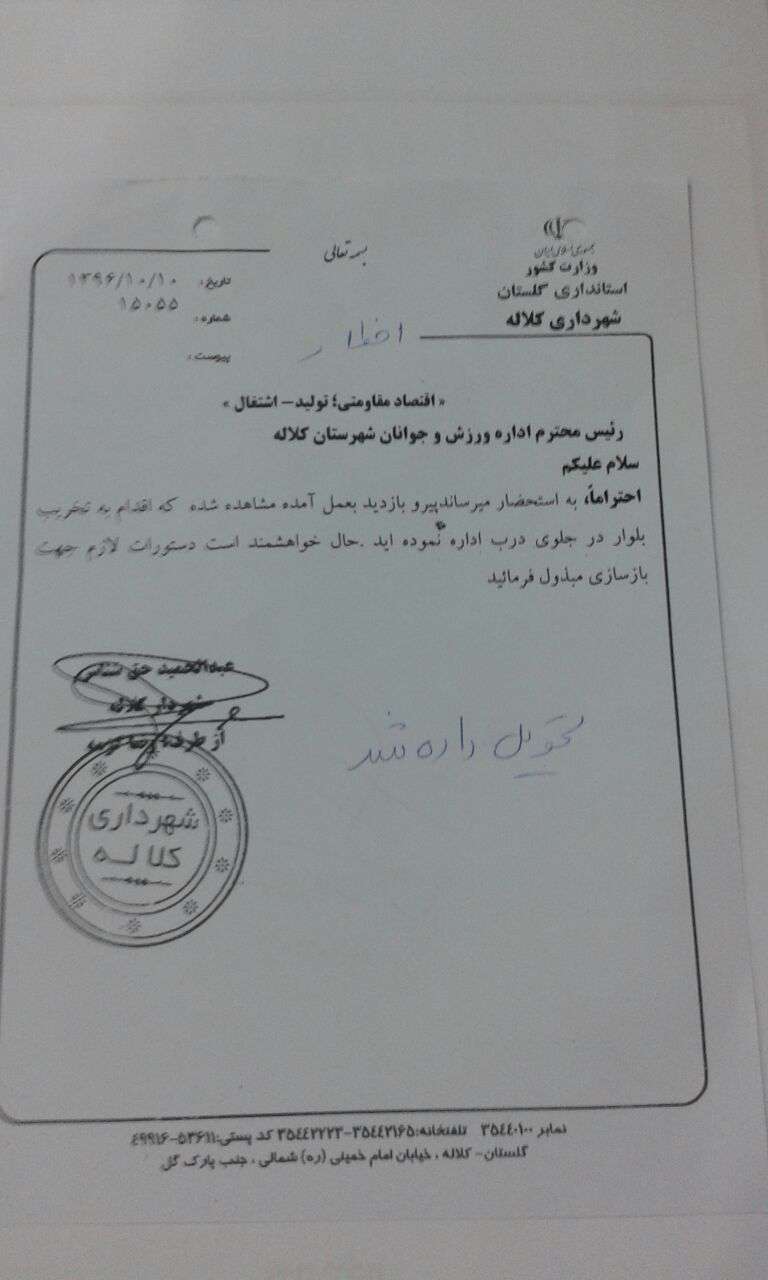 بسمه تعالی
جمهوری اسلامی ایران
وزارت کشور
استانداری گلستان
شهرداری کلاله
تاریخ: ۱۳۹۶/۱۰/۱۰
شماره: ۱۵۰۵۵
پیوست:
اخطار
« اقتصاد مقاومتی؛ تولید– اشتغال »
رئیس محترم اداره ورزش و جوانان شهرستان کلاله
سلام علیکم
احتراماً، به استحضار میرساندپیرو بازدید بعمل آمده مشاهده شده که اقدام به تخریب
بلوار در جلوی درب اداره نموده اید .حال خواهشمند است دستورات لازم جهت
بازسازی مبذول فرمائید
عبدالحمید حق شناس
شهردار کلاله
از طرف رضا
تحویل داده شد
شهرداری
کلاله
نمابر ۳۵۴۴۰۱۰۰ تلفتخانه:۳۵۴۴۲۱۶۵-۳۵۴۴۲۲۲۳ کد پستی:۵۳۶۱۱-۴۹۹۱۶
گلستان- کلاله ، خیابان امام خمینی (ره) شمالی ، جنب پارک گل